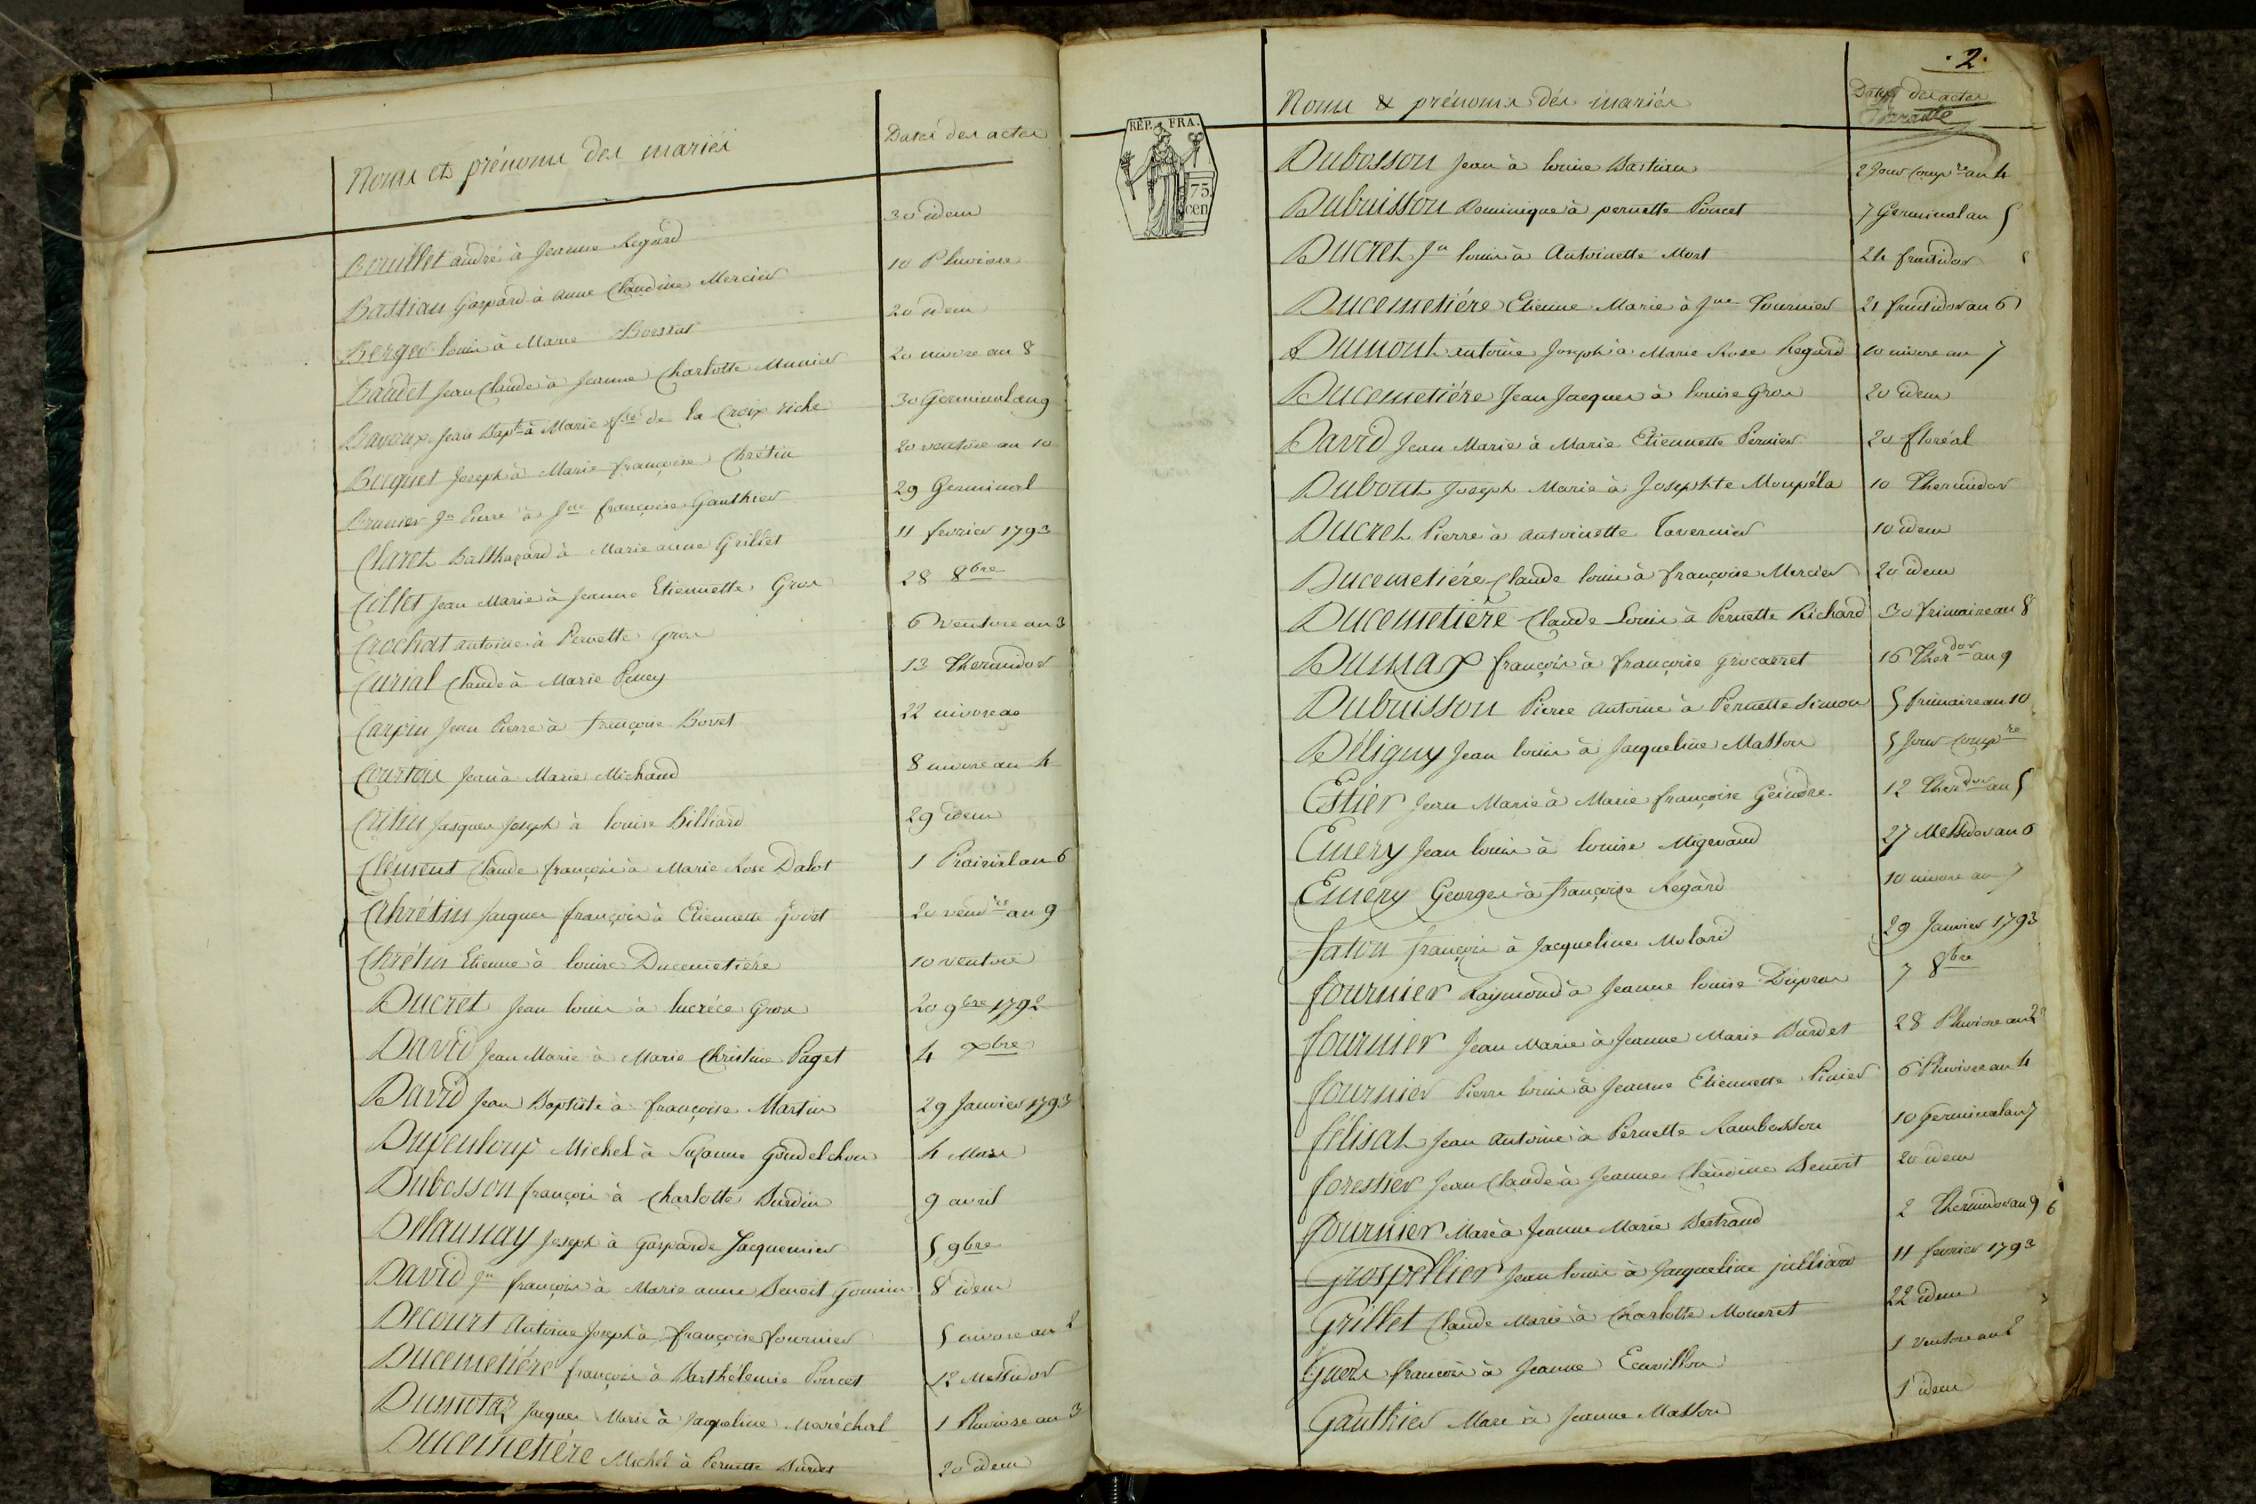 Noms et prénoms des mariés Dates des actes
Bouillet andré à Jeanne Regard 30 idem
Bastian Gaspard à anne Claudine Mercier 10 Pluviose
Berger louis à Marie 20 idem
Baudet Jean Claude à Jeanne Charlotte Munier 20 nivose an 8
Bavoux Jean Bapte à Marie fse de la Croix riche 30 Germinal an 9
Bocquet Joseph à Marie françoise Chrétin 20 ventose an 10
Brunier Jn Pierre à Jne françoise Gauthier 29 Germinal
Claret Balthazard à Marie anne Grillet 11 fevrier 1793
Cillet Jean Marie à Jeanne Etiennette Gros 28 8bre
Crochat antoine à Pernette Gros 6 ventose an 3
Curial Claude à Marie 13 Thermidor
Carpin Jean Pierre à françoise Bovet 22 nivose
Courtois Jean à Marie Michaud 8 nivose an 4
Catin Jacques Joseph à louise Billiard 29 idem
Clément Claude françois à Marie Rose Dalot 1 Prairial an 6
Chrétin Jacques françois à Etiennette 20 vendre an 9
Chrétin Etienne à louise Ducemetiére 10 ventose
Ducret Jean louis à lucréce Gros 20 9bre 1792
David Jean Marie à Marie Christine Paget 4 xbre
David Jean Baptiste à françoise Martin 29 Janvier 1793
Dupenloup Michel à Suzanne 4 Mars
Dubosson françois à Charlotte Burdin 9 avril
Delaunay Joseph à Gasparde Jacquemier 5 9bre
David Jn françois à Marie anne Benoit Gonin 8 idem
Decourt Antoine Joseph à françoise fournier 5 nivose an 2
Ducemetiére françois à Barthélemie Poncet 12 Messidor
Dumotaz Jacques Marie à Jaqueline Maréchal 1 Pluviose an 3
Ducemetiére Michel à Pernette Burdet 20 idem
.2.
RÉP. FRA.
75
cen
Noms & prénoms des mariés Dates des actes
Dubosson Jean à louise Bastian 2 Jour compre an 4
Dubuisson Dominique à pernette Poncet 7 Germinal an 5
Ducret Jn louis à Antoinette Mort 24 fructidor
Ducemetiére Etienne Marie à Jne Tournier 21 fructidor an 6
Dumont antoine Joseph à Marie Rose Regard 10 nivose an 7
Ducemetiére Jean Jacques à louise Gros 20 idem
David Jean Marie à Marie Etiennette Pernier 20 floréal
Dubout Joseph Marie à Josephte Monpéla 10 Thermidor
Ducret Pierre à antoinette Tavernier 10 idem
Ducemetiére Claude louis à françoise Mercier 20 idem
Ducemetiére Claude Louis à Pernette Richard 30 frimaire an 8
Dumax françois à françoise Grocarret 16 Therdor an 9
Dubuisson Pierre antoine à Pernette Simon 5 frimaire an 10
Déligny Jean louis à Jacqueline Masson 5 Jour compre
Estier Jean Marie à Marie françoise Geindre 12 Therdor an 5
Emery Jean louis à louise Migevand 27 Messidor an 6
Emery Georges à françoise Regard 10 nivose an 7
faton françois à Jacqueline Molard 29 Janvier 1793
fournier Raymond à Jeanne louise Dupras 7 8bre
fournier Jean Marie à Jeanne Marie Burdet 28 Pluviose an 2
fournier Pierre louis à Jeanne Etiennette Pinier 6 Pluviose an 4
félisat Jean antoine à Pernette Rambosson 10 germinal an 7
forestier Jean Claude à Jeanne Claudine Benoit 20 idem
fournier Marc à Jeanne Marie Bertrand 2 Thermidor an 9
Grospellier Jean louis à Jacqueline julliard 11 fevrier 1793
Grillet Claude Marie à Charlotte Moneret 22 idem
Guers françois à Jeanne Ecuvillon 1 ventose an 2
Gauthier Marc à Jeanne Masson 1 idem